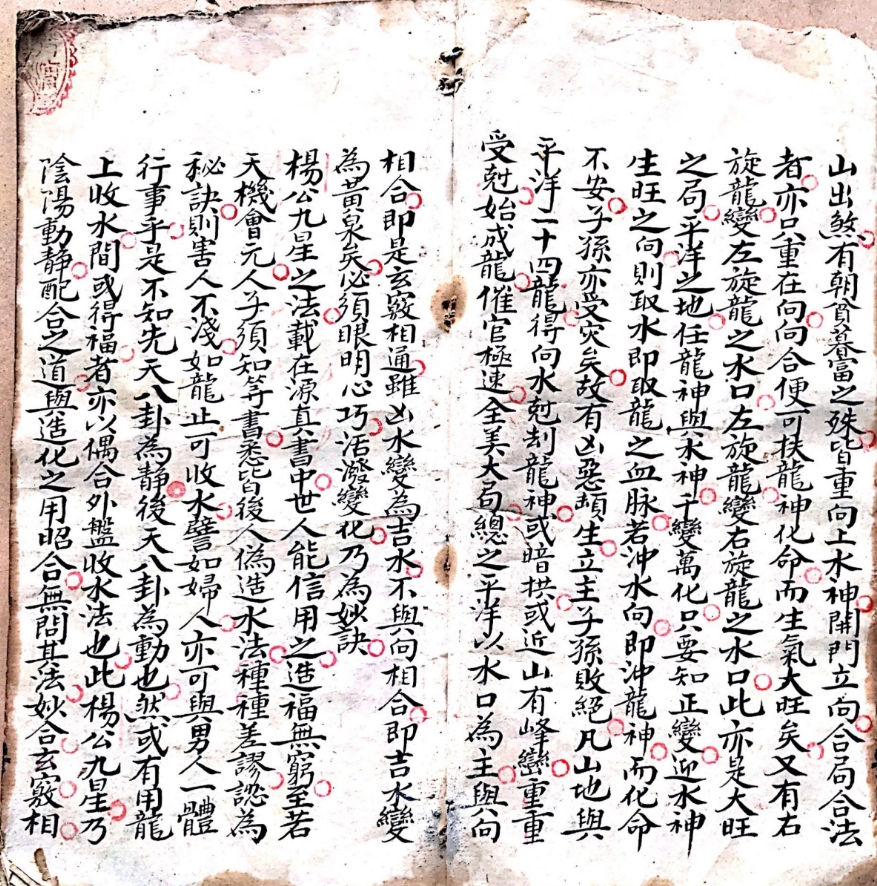 山出煞有朝貧暮富之殊皆重向上水神開門立向合局合法
者亦只重在向向合便可扶龍神化命而生氣大旺矣又有右
旋龍變左旋龍之水口左旋龍變右旋龍之水口此亦是大旺
之局平洋之地任龍神與水神千變萬化只要知正變迎水神
生旺之向則取水即取龍之血脉若沖水向即沖龍神而化命
不安子孫亦受灾矣故有凶惡頑生立主子孫敗絕凡山地與
平洋二十四龍得向水尅刦龍神或暗拱或近山有峰巒重重
受尅始成龍催官極速全美大局總之平洋以水口為主與向
相合即是玄竅相通雖凶水變為吉水不與向相合即吉水變
為黃泉矣必須眼明心巧活潑變化乃為妙訣
楊公九星之法載在源真書中世人能信用之造福無窮至若
天機會元人子須知等書悉皆後人偽造水法種種差謬認為
秘訣則害人不淺如龍止可收水譬如婦人亦可與男人一體
行事乎是不知先天八卦為靜後天八卦為動也然或有用龍
上收水間或得福者亦以偶合外盤收水法也此楊公九星乃
陰陽動靜配合之道與造化之用昭合無間其法妙合玄竅相